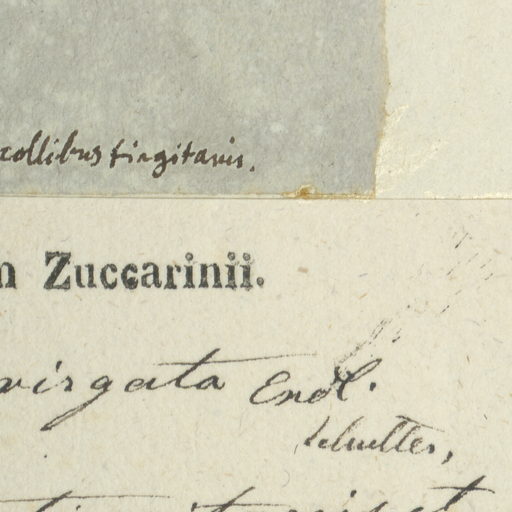 collibus tingitanis.
m Zuccarinii.
virgata Endl.
Schultes,